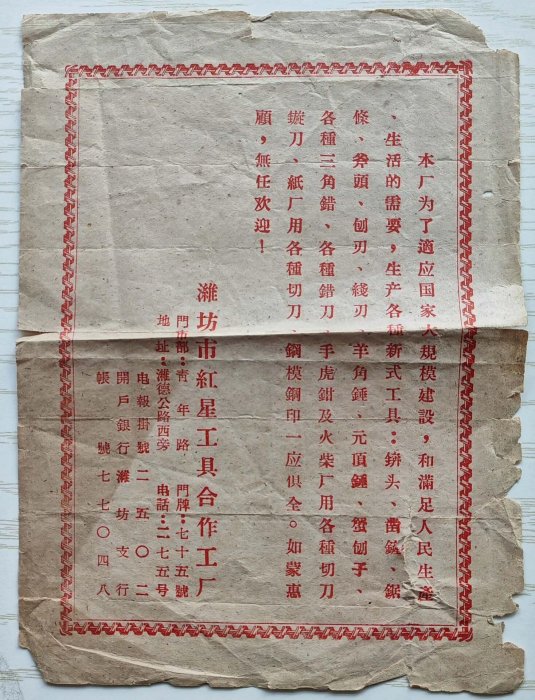 本厂为了適应国家大規模建設，和滿足人民生產
、生活的需要，生产各種新式工具：錛头、凿鋸、鋸
條、斧頭、刨刃、綫刃、羊角錘、元頂錘、蟹刨子、
各種三角錯、各種錯刀、手虎鉗及火柴厂用各種切刀
鏇刀、紙厂用各種切刀、鋼模鋼印一应俱全。如蒙惠
顧，無任欢迎！
濰坊市紅星工具合作工厂
門市部：青年路 門牌：七十五號
地址：濰德公路西旁 电話：二七五号
电報掛號二五〇二
開戶銀行濰坊支行
帳號七七〇四八